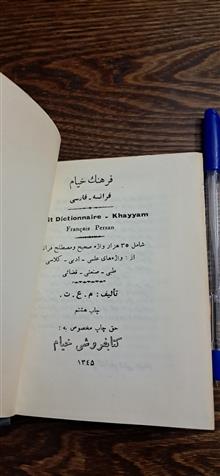 فرهنگ خیام
فرانسه - فارسی
it Dictionnaire - Khayyam
Français Persan
شامل ۳۵ هزار واژه صحیح ومصطلح فران
از : واژه‌های علمی - ادبی - کلامی
طبی - صنعتی - قضائی
تألیف : م . ع . ت .
چاپ هشتم
حق چاپ مخصوص به :
کتابفروشی خیام
۱۳۴۵